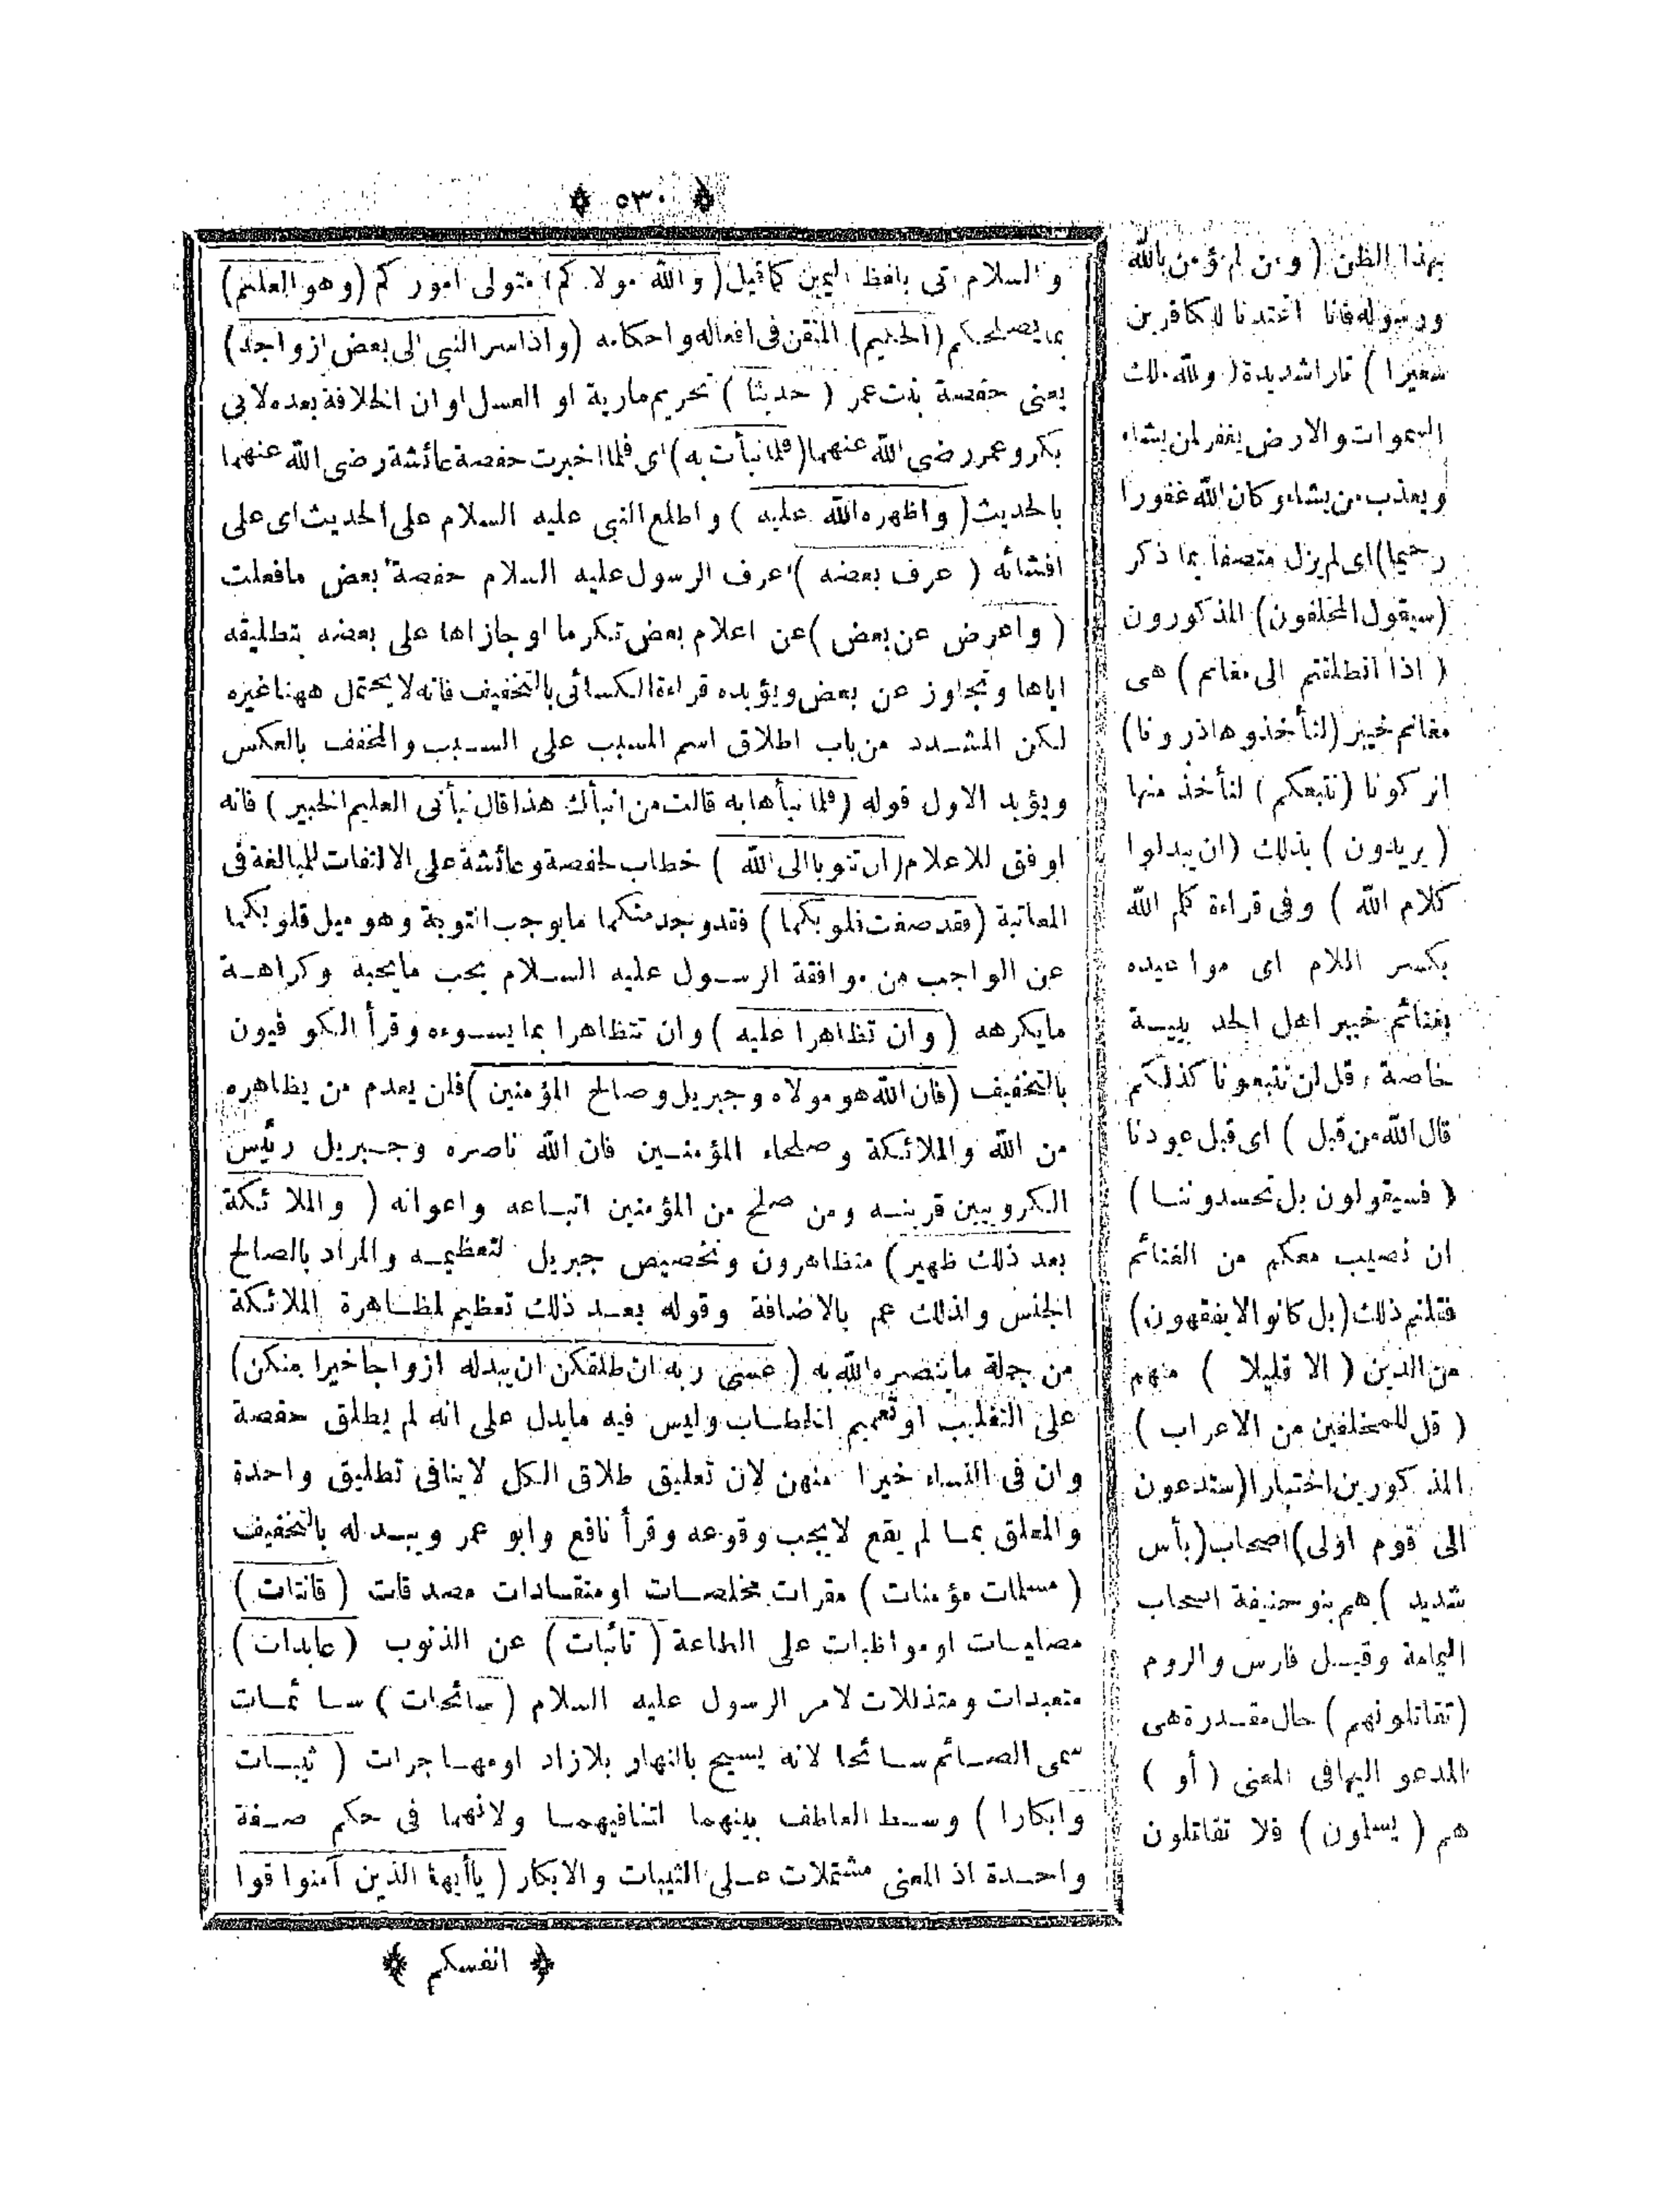 ﴿ ٥٣٠ ﴾
والسلام اتى بلفظ اليمين كما قيل (والله مولاكم) متولى اموركم (وهو العليم)
بما يصلحكم (الحكيم) المتقن فى افعاله واحكامه (واذ اسر النبى الى بعض ازواجه)
يعنى حفصة بنت عمر (حديثا) تحريم مارية او العسل او ان الخلافة بعده لابى
بكر وعمر رضى الله عنهما (فلما نبأت به) اى فلما اخبرت حفصة عائشة رضى الله عنهما
بالحديث (واظهره الله عليه) واطلع النبى عليه السلام على الحديث اى على
افشائه (عرف بعضه) عرف الرسول عليه السلام حفصة بعض مافعلت
(واعرض عن بعض) عن اعلام بعض تكرما او جازاها على بعضه بتطليقه
اياها وتجاوز عن بعض ويؤيده قراءة الكسائى بالتخفيف فانه لا يحتمل ههنا غيره
لكن المشدد من باب اطلاق اسم المسبب على السبب والمخفف بالعكس
ويؤيد الاول قوله (فلما نبأها به قالت من انبأك هذا قال نبأنى العليم الخبير) فانه
اوفق للاعلام (ان تتوبا الى الله) خطاب لحفصة وعائشة على الالتفات للمبالغة فى
المعاتبة (فقد صغت قلوبكما) فقد وجد منكما مايوجب التوبة وهو ميل قلوبكما
عن الواجب من موافقة الرسول عليه السلام بحب مايحبه وكراهة
مايكرهه (وان تظاهرا عليه) وان تتظاهرا بما يسوءه وقرأ الكوفيون
بالتخفيف (فان الله هو مولاه وجبريل وصالح المؤمنين) فلن يعدم من يظاهره
من الله والملائكة وصلحاء المؤمنين فان الله ناصره وجبريل رئيس
الكروبيين قرينه ومن صلح من المؤمنين اتباعه واعوانه (والملائكة
بعد ذلك ظهير) متظاهرون وتخصيص جبريل لتعظيمه والمراد بالصالح
الجنس ولذلك عم بالاضافة وقوله بعد ذلك تعظيم لمظاهرة الملائكة
من جملة ماينصره الله به (عسى ربه ان طلقكن ان يبدله ازواجا خيرا منكن)
على التغليب او تعميم الخطاب وليس فيه مايدل على انه لم يطلق حفصة
وان فى النساء خيرا منهن لان تعليق طلاق الكل لاينافى تطليق واحدة
والمعلق بما لم يقع لايجب وقوعه وقرأ نافع وابو عمر ويبدله بالتخفيف
(مسلمات مؤمنات) مقرات مخلصات او منقادات مصدقات (قانتات)
مصليات او مواظبات على الطاعة (تائبات) عن الذنوب (عابدات)
متعبدات ومتذللات لامر الرسول عليه السلام (سائحات) سائمات
سمى الصائم سائحا لانه يسيح بالنهار بلازاد او مهاجرات (ثيبات
وابكارا) وسط العاطف بينهما لتنافيهما ولانهما فى حكم صفة
واحدة اذ المعنى مشتملات على الثيبات والابكار (ياأيها الذين آمنوا قوا
﴿ انفسكم ﴾
بهذا الظن (ومن لم يؤمن بالله
ورسوله فانا اعتدنا للكافرين
سعيرا) نارا شديدة (ولله ملك
السموات والارض يغفر لمن يشاء
ويعذب من يشاء وكان الله غفورا
رحيما) اى لم يزل متصفا بما ذكر
(سيقول المخلفون) المذكورون
(اذا انطلقتم الى مغانم) هى
مغانم خيبر (لتأخذوها ذرونا)
اتركونا (نتبعكم) لنأخذ منها
(يريدون) بذلك (ان يبدلوا
كلام الله) وفى قراءة كلم الله
بكسر اللام اى مواعيده
بغنائم خيبر اهل الحديبية
خاصة (قل لن تتبعونا كذلكم
قال الله من قبل) اى قبل عودنا
(فسيقولون بل تحسدوننا)
ان نصيب معكم من الغنائم
فقلتم ذلك (بل كانوا لايفقهون)
من الدين (الا قليلا) منهم
(قل للمخلفين من الاعراب)
المذكورين اختبارا (ستدعون
الى قوم اولى) اصحاب (بأس
شديد) هم بنو حنيفة اصحاب
اليمامة وقيل فارس والروم
(تقاتلونهم) حال مقدرة هى
المدعو اليها فى المعنى (أو)
هم (يسلمون) فلا تقاتلون